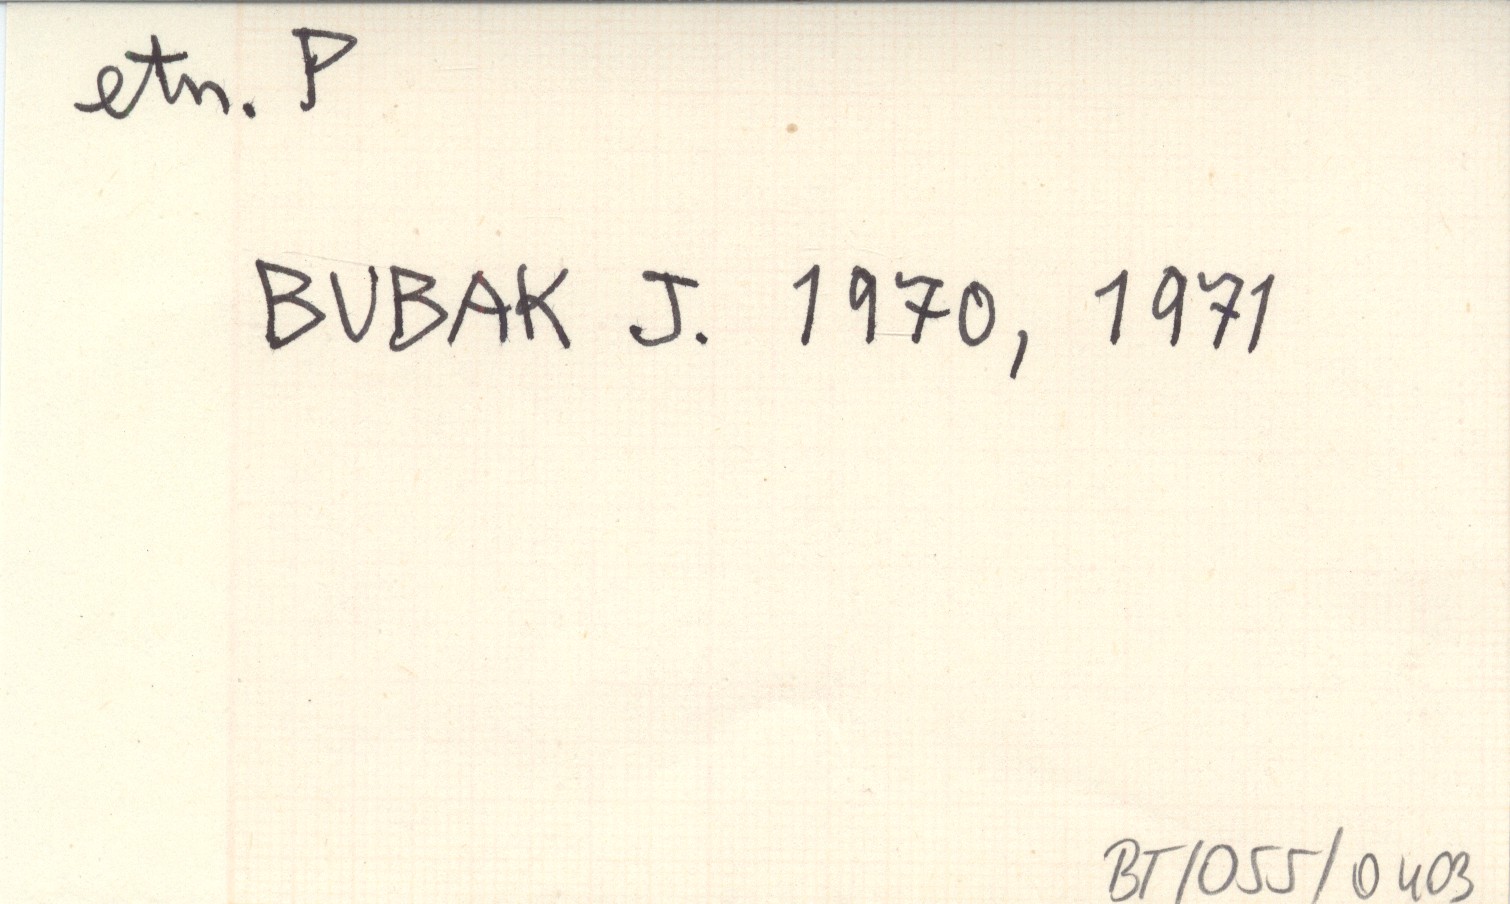 etn. P
BUBAK J. 1970, 1971
BT/055/0403